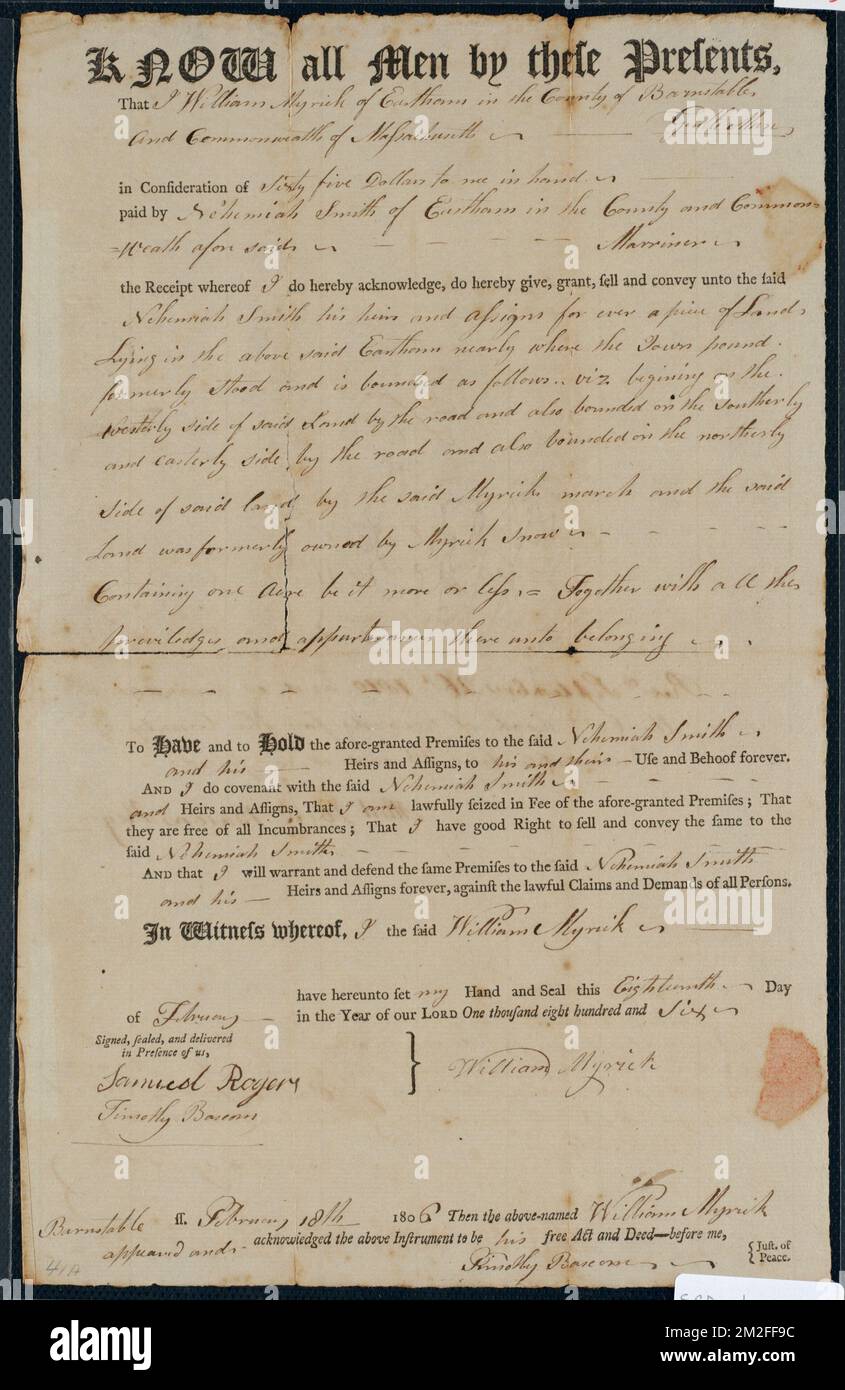 KNOW all Men by theſe Preſents,
That I William Myrick of Eastham in the County of Barnstable
and Commonwealth of Massachusetts
in Conſideration of Sixty five Dollars to me in hand
paid by Nehemiah Smith of Eastham in the County and Common=
=weath afore said Marriner
the Receipt whereof I do hereby acknowledge, do hereby give, grant, ſell and convey unto the ſaid
Nehemiah Smith his heirs and assigns for ever a piece of Land
Lying in the above said Eastham nearly where the Town pound
formerly stood and is bounded as follows.. viz begining on the
westerly side of said Land by the road and also bounded on the southerly
and easterly side by the road and also bounded on the northerly
side of said land by the said Myricks march and the said
Land was formerly owned by Myrick Snow
Containing one acre be it more or less = Together with all the
priviledges and appurtenances there unto belonging
To Have and to Hold the afore-granted Premiſes to the ſaid Nehemiah Smith
and his Heirs and Aſſigns, to his and theirs Uſe and Behoof forever.
AND I do covenant with the ſaid Nehemiah Smith
and Heirs and Aſſigns, That I am lawfully ſeized in Fee of the afore-granted Premiſes; That
they are free of all Incumbrances; That I have good Right to ſell and convey the ſame to the
ſaid Nehemiah Smith
AND that I will warrant and defend the ſame Premiſes to the ſaid Nehemiah Smith
and his Heirs and Aſſigns forever, againſt the lawful Claims and Demands of all Perſons.
In Witneſs whereof, I the ſaid William Myrick
have hereunto ſet my Hand and Seal this Eighteenth Day
of February in the Year of our LORD One thouſand eight hundred and Six
Signed, ſealed, and delivered
in Preſence of us,
Samuel Rogers
Timothy Bascom
William Myrick
Barnstable ſſ. February 18th 1806 Then the above-named William Myrick
appeared and acknowledged the above Inſtrument to be his free Act and Deed—before me,
Timothy Bascom { Juſt. of
Peace.
41A
alamy
Image ID: 2M2FF9C
www.alamy.com